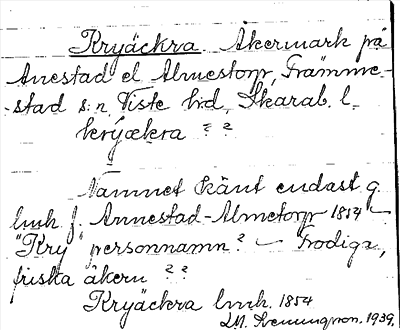 Kryäckra. Åkermark på
Anestad el Almestorp, Främme-
-stad s:n, Viste hd, Skarab. l.
krýækra ? ?
Namnet känt endast g.
lmh. f. Annestad-Almetorp 1854 —
"Kry" personnamn? — Frodiga,
friska åkern ? ?
Kryäckra lmh. 1854
1939.